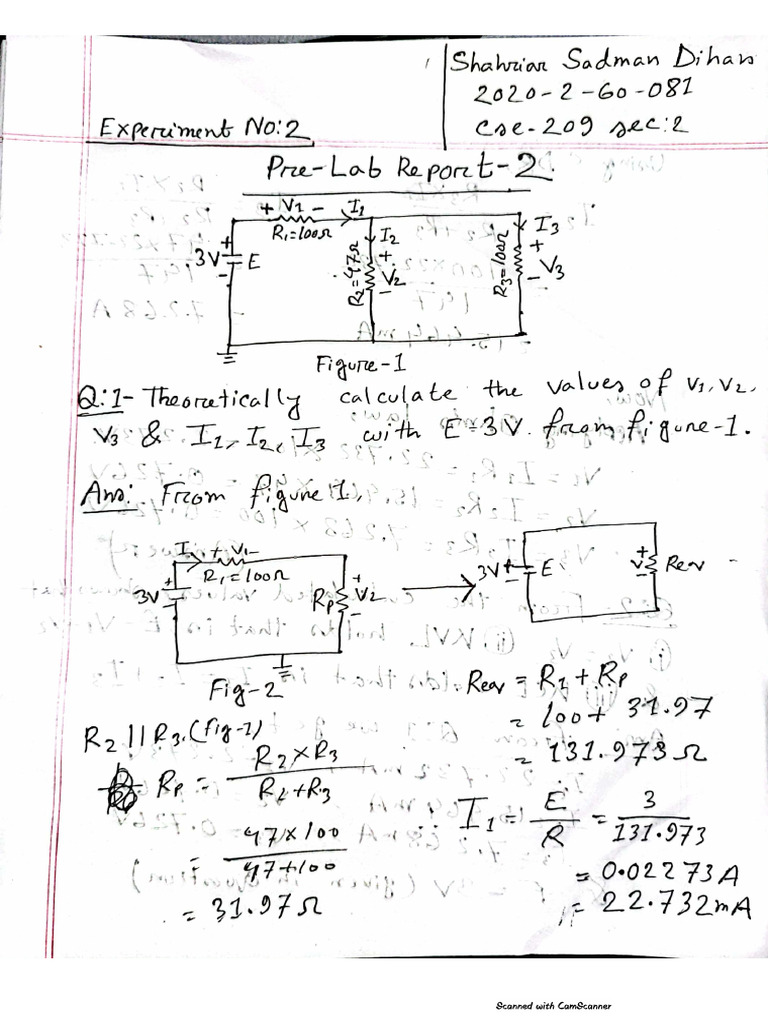 Shahriar Sadman Dihan
2020-2-60-081
Cse-209 sec:2
Experiment No:2
Pre-Lab Report-2.
+ V1 - I1
R1=100Ω
3V + - E
I2
R2=47Ω
+ V2 -
I3
R3=100Ω
+ V3 -
Figure-1
Q:1- Theoretically calculate the values of V1, V2,
V3 & I1, I2, I3 with E=3V. from figure-1.
Ans: From figure 1,
I + V1 -
R1=100Ω
3V +
RP + V2 -
Fig-2
3V + - E
+ V - Rev
R2 || R3. (fig-1)
RP = R2 × R3 / R2+R3
= 47×100 / 47+100
= 31.97Ω
Rev = R1 + RP
= 100 + 31.97
= 131.973Ω
I1 = E / R = 3 / 131.973
= 0.02273A
= 22.732mA
Scanned with CamScanner